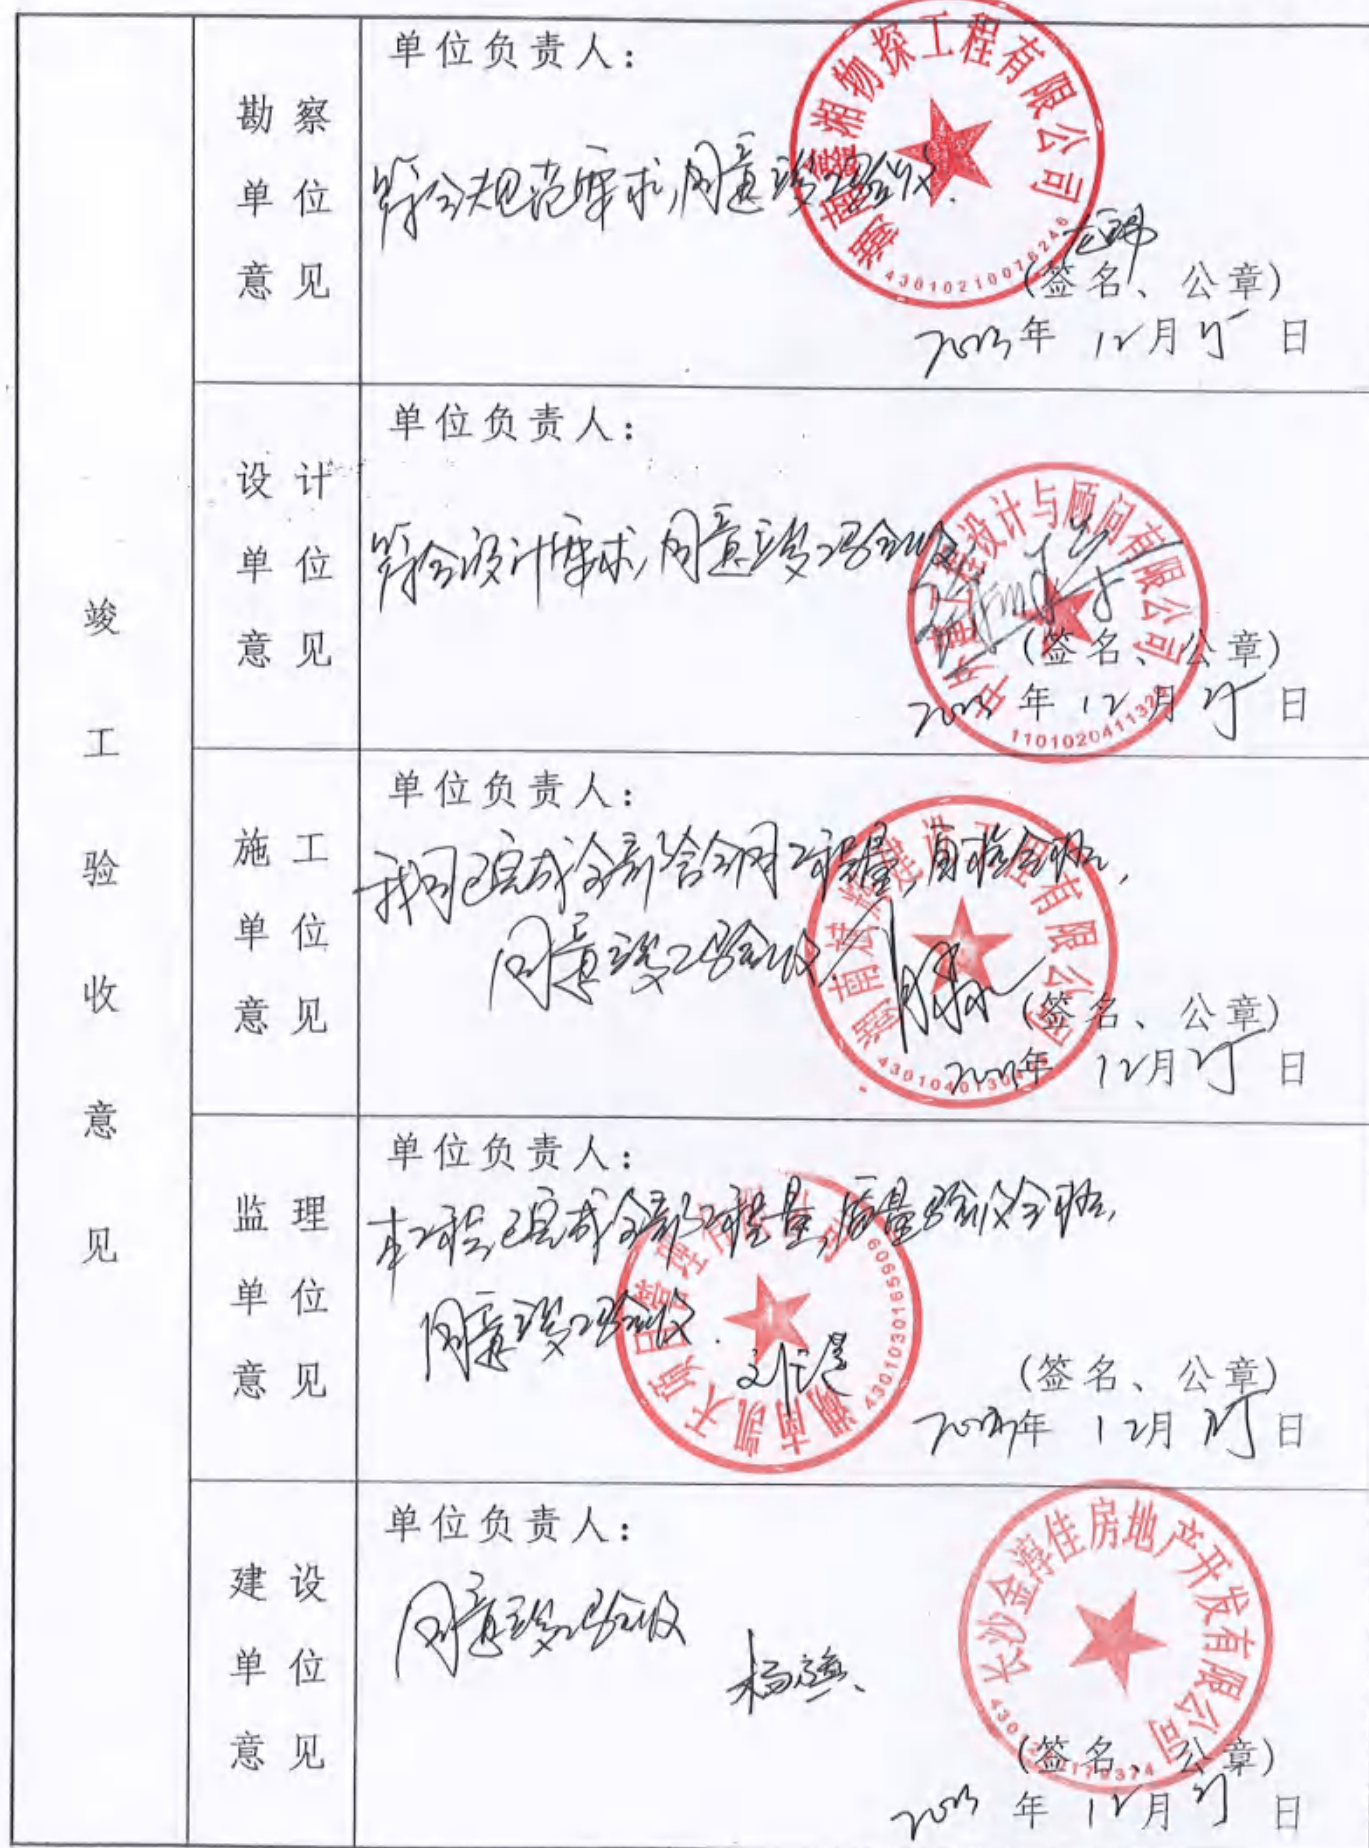 竣工验收意见
勘察单位意见
单位负责人：
符合规范要求,同意竣工验收.
湖南鑫湘物探工程有限公司
43010210076246
(签名、公章)
2023年 12月25日
设计单位意见
单位负责人：
符合设计要求,同意竣工验收.
中外建工程设计与顾问有限公司
(签名、公章)
2023年12月25日
施工单位意见
单位负责人：
我司已完成全部合同工程量,自检合格,
同意竣工验收.
(签名、公章)
年 12月25日
监理单位意见
单位负责人：
本工程已完成全部工程量,质量验收合格,
同意竣工验收.
湖南凯天项目管理有限公司
(签名、公章)
2023年 12月25日
建设单位意见
单位负责人：
同意竣工验收
长沙金淳佳房地产开发有限公司
(签名、公章)
2023年 12月25日